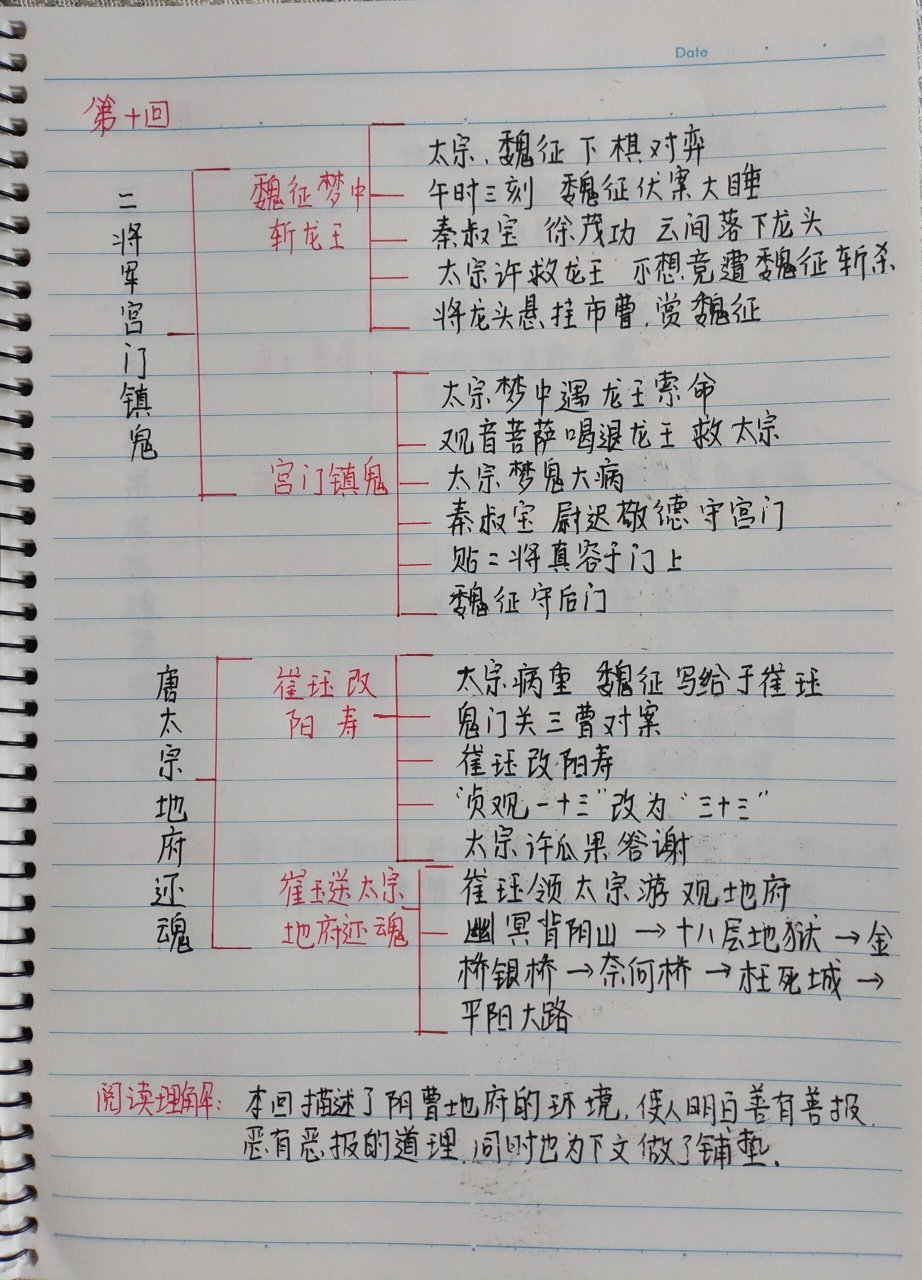 Date
第十回
二将军宫门镇鬼
魏征梦中
斩龙王
太宗、魏征下棋对弈
午时三刻 魏征伏案大睡
秦叔宝 徐茂功 云间落下龙头
太宗许救龙王 不想竟遭魏征斩杀
将龙头悬挂市曹,赏魏征
宫门镇鬼
太宗梦中遇龙王索命
观音菩萨喝退龙王 救太宗
太宗梦鬼大病
秦叔宝 尉迟敬德守宫门
贴二将真容于门上
魏征守后门
唐太宗地府还魂
崔珏改
阳寿
太宗病重 魏征写给于崔珏
鬼门关三曹对案
崔珏改阳寿
“贞观一十三”改为“三十三”
太宗许瓜果答谢
崔珏送太宗
地府还魂
崔珏领太宗游观地府
幽冥背阴山→十八层地狱→金
桥银桥→奈何桥→枉死城→
平阳大路
阅读理解: 本回描述了阴曹地府的环境,使人明白善有善报,
恶有恶报的道理,同时也为下文做了铺垫。